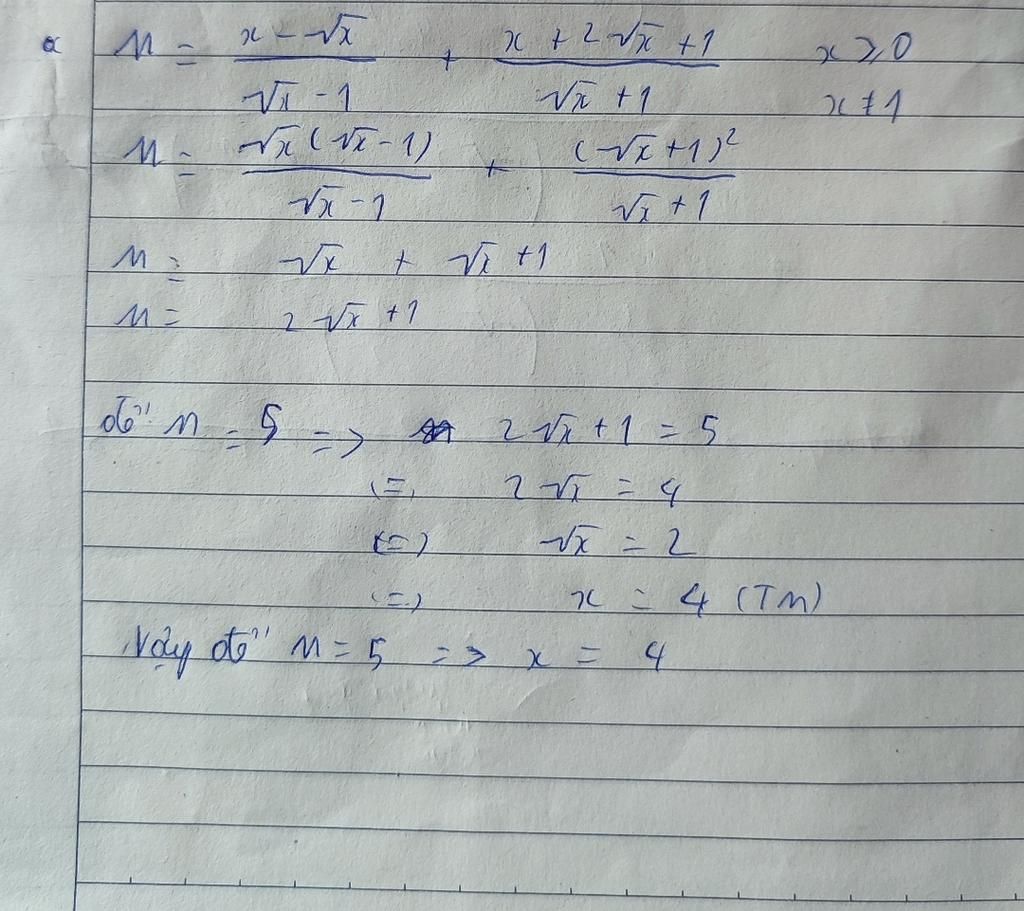 a M = (x - √x)/(√x - 1) + (x + 2√x + 1)/(√x + 1) x ≥ 0
x ≠ 1
M = √x(√x - 1)/(√x - 1) + (√x + 1)²/(√x + 1)
M = √x + √x + 1
M = 2√x + 1
để M = 5 => 2√x + 1 = 5
(=) 2√x = 4
(=) √x = 2
(=) x = 4 (TM)
Vậy để M = 5 => x = 4